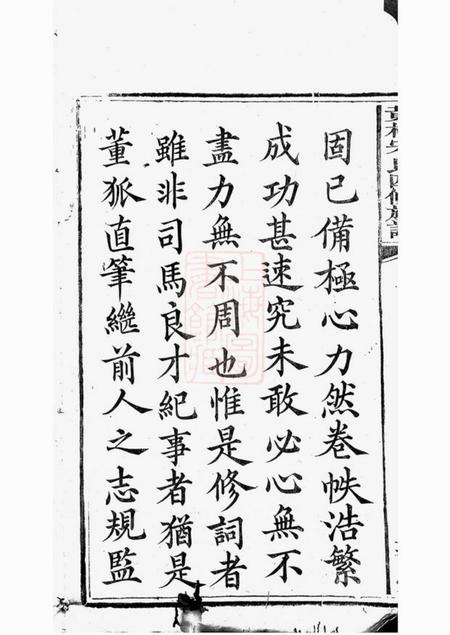 固已備極心力然卷帙浩繁
成功甚速究未敢必心無不
盡力無不周也惟是修詞者
雖非司馬良才紀事者猶是
董狐直筆繼前人之志規監